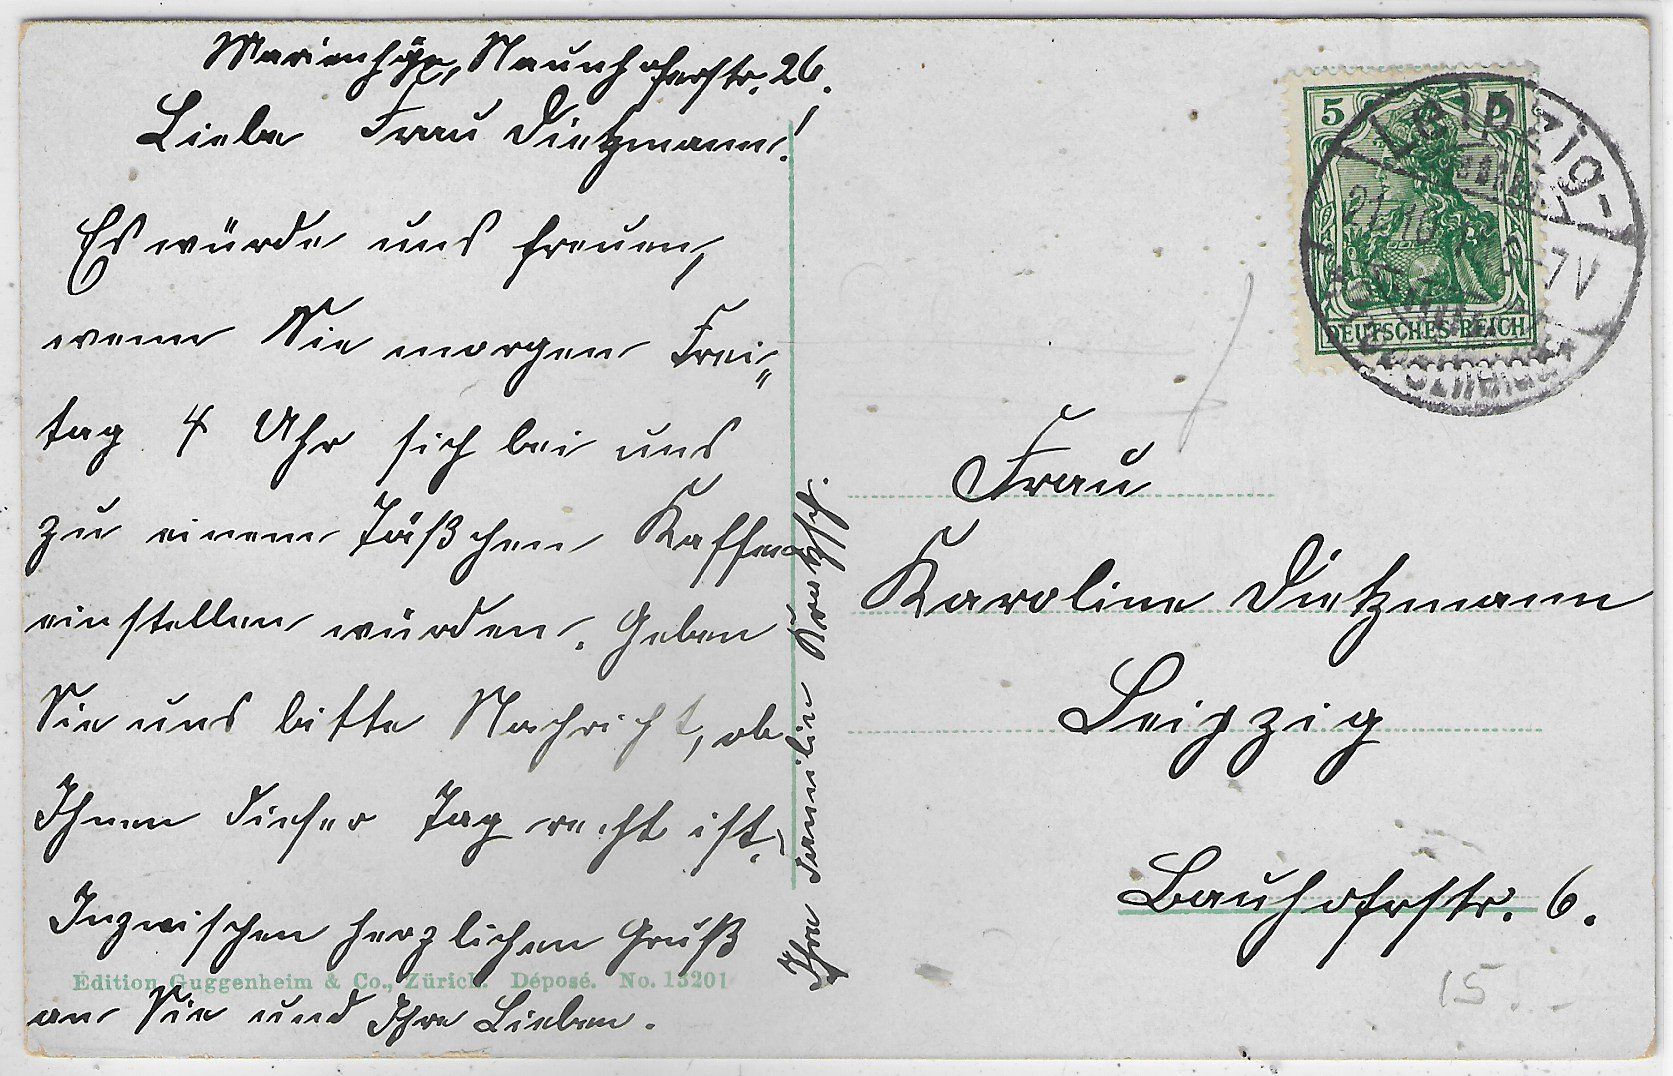 Marienhöhe, Naunhoferstr. 26.
Liebe Frau Dietzmann!
Es würde uns freuen,
wenn Sie morgen Frei-
tag 4 Uhr sich bei uns
zu einem Täßchen Kaffee
einstellen würden. Geben
Sie uns bitte Nachricht, ob
Ihnen dieser Tag recht ist.
Inzwischen herzlichen Gruß
an Sie und Ihre Lieben.
Ihre Familie
Edition Guggenheim & Co., Zürich. Déposé. No. 13201
5 5
DEUTSCHES REICH
Leipzig-
6-7V
Frau
Karoline Dietzmann
Leipzig
Bauhofstr. 6.
15